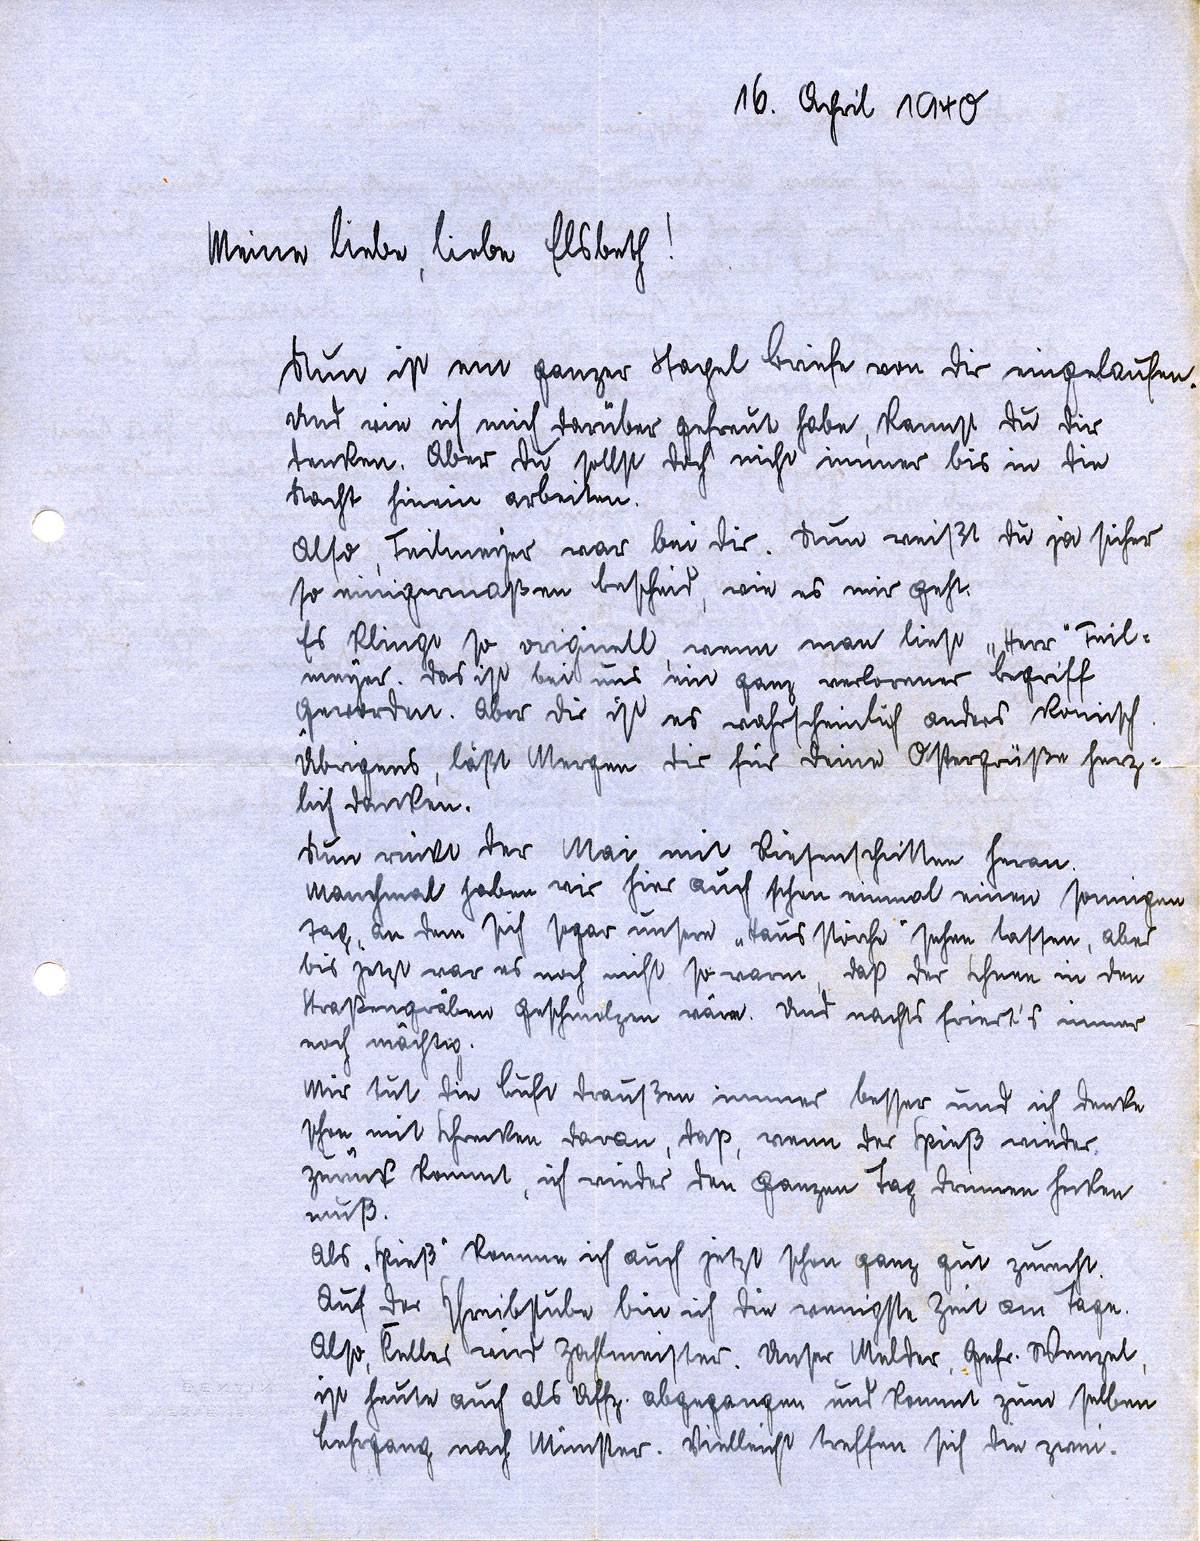 16. April 1940
Meine liebe, liebe Elsbeth!
Nun ist ein ganzer Stapel Briefe von Dir eingelaufen.
Und wie ich mich darüber gefreut habe, kannst Du Dir
denken. Aber Du sollst doch nicht immer bis in die
Nacht hinein arbeiten.
Also, Teilmeyer war bei Dir. Nun weißt Du ja sicher
so einigermaßen bescheid, wie es mir geht.
Es klingt so originell, wenn man liest „Herr" Teil-
meyer. Das ist bei uns ein ganz verlorener Begriff
geworden. Aber Dir ist es wahrscheinlich anders komisch.
Übrigens, läßt Mergen Dir für Deine Ostergrüße herz-
lich danken.
Nun rückt der Mai mit Riesenschritten heran.
Manchmal haben wir hier auch schon einmal einen sonnigen
Tag, an dem sich sogar unsere „Hausstörche" sehen lassen, aber
bis jetzt war es noch nicht so warm, daß der Schnee in den
Straßengräben geschmolzen wäre. Und nachts friert's immer
noch mächtig.
Mir tut die Luft draußen immer besser und ich denke
schon mit Schrecken daran, daß, wenn der Spieß wieder
zurück kommt, ich wieder den ganzen Tag drinnen hocken
muß.
Als „Spieß" komme ich auch jetzt schon ganz gut zurecht.
Auf der Schreibstube bin ich die wenigste Zeit am Tage.
Also, Keller wird Zahlmeister. Unser Melder, Gefr. Wenzel,
ist heute auch als Uffz. abgegangen und kommt zum selben
Lehrgang nach Münster. Vielleicht treffen sich die zwei.